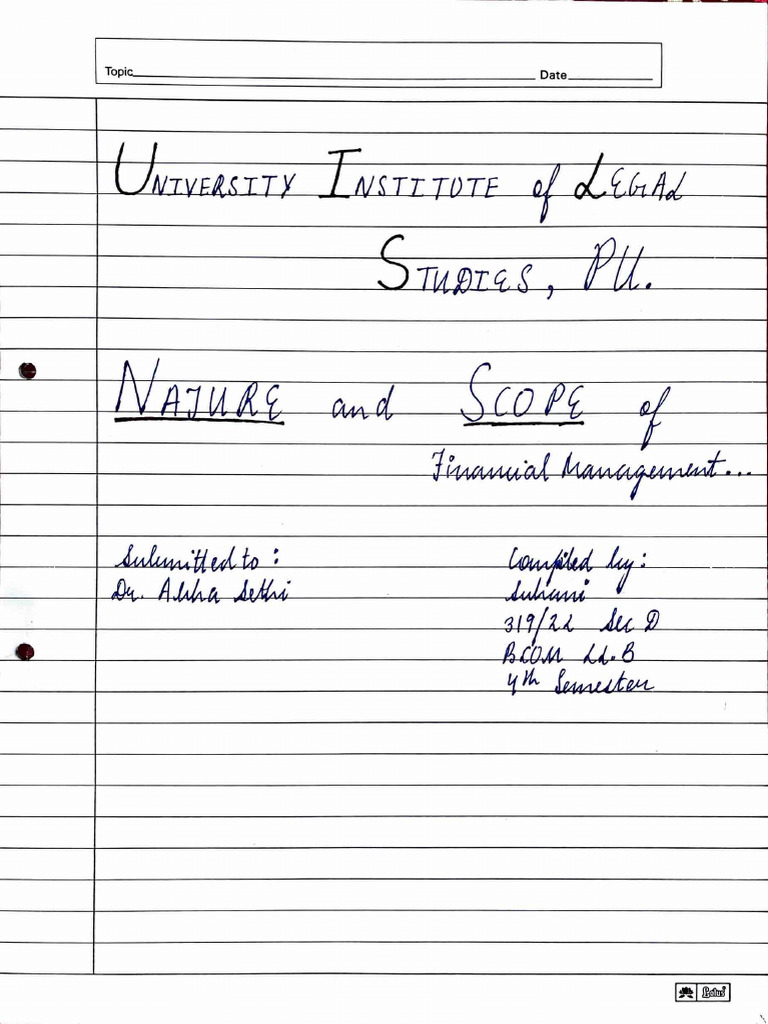 Topic Date
UNIVERSITY INSTITUTE of LEGAL
STUDIES, PU.
NATURE and SCOPE of
Financial Management...
Submitted to : Compiled by:
Dr. Abha Sethi Suhani
319/22 Sec D
BCOM LL.B
4th Semester
Lotus